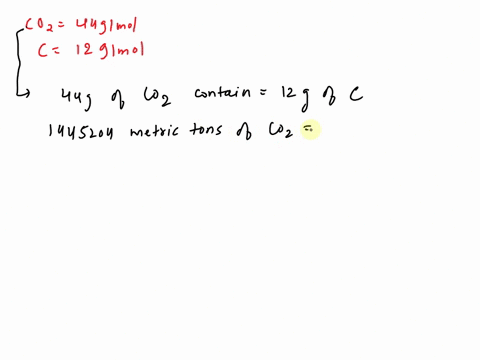 CO2 = 44g/mol
C = 12 g/mol
44g of CO2 contain = 12 g of C
1445204 metric tons of CO2 =